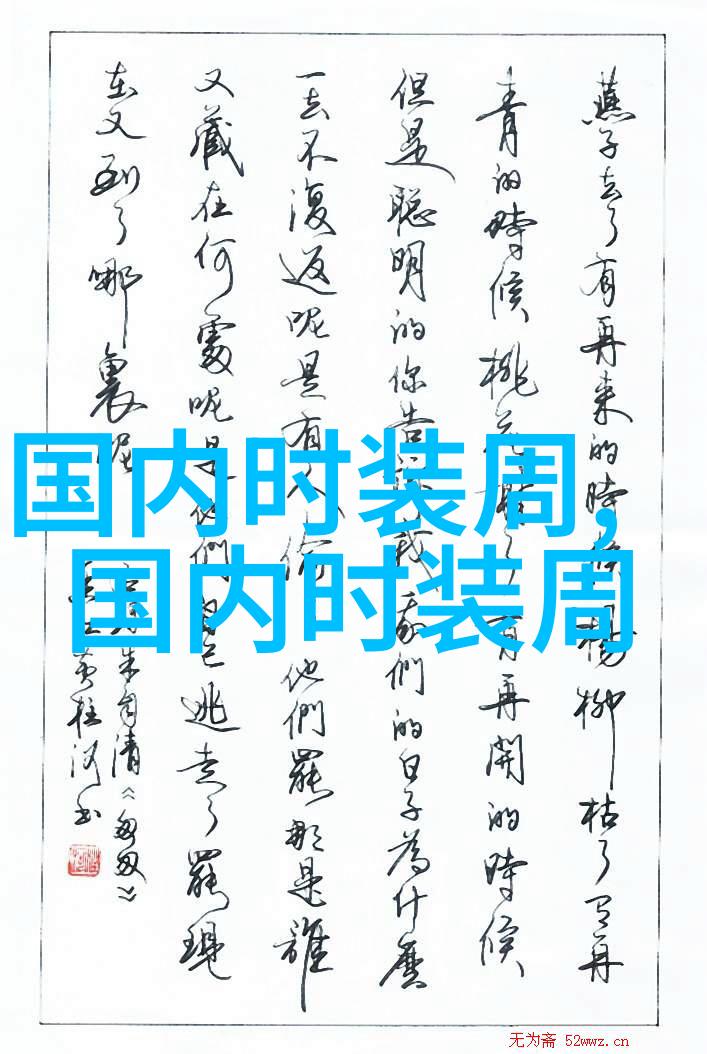 国内时装周,
国内时装周
燕子去了有再来的時候楊柳枯了有再
青的時候桃花謝了有再開的時候
但是聪明的你告訴我我們的日子為什麼
一去不復返呢是有人偷他們罷那是誰
又藏在何處呢是他們自己逃走了罷現
在又到了哪裏呢
朱自清《匆匆》
黄桂书
无为斋 52wwz.cn